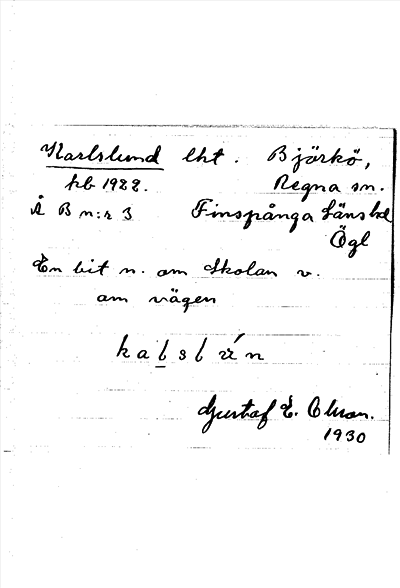 Karlslund lht. Björkö,
kb 1922. Regna sn.
Å B n:r 3 Finspånga länshd
Ögl
En bit n. om skolan v.
om vägen
Gustaf E. Olson.
1930